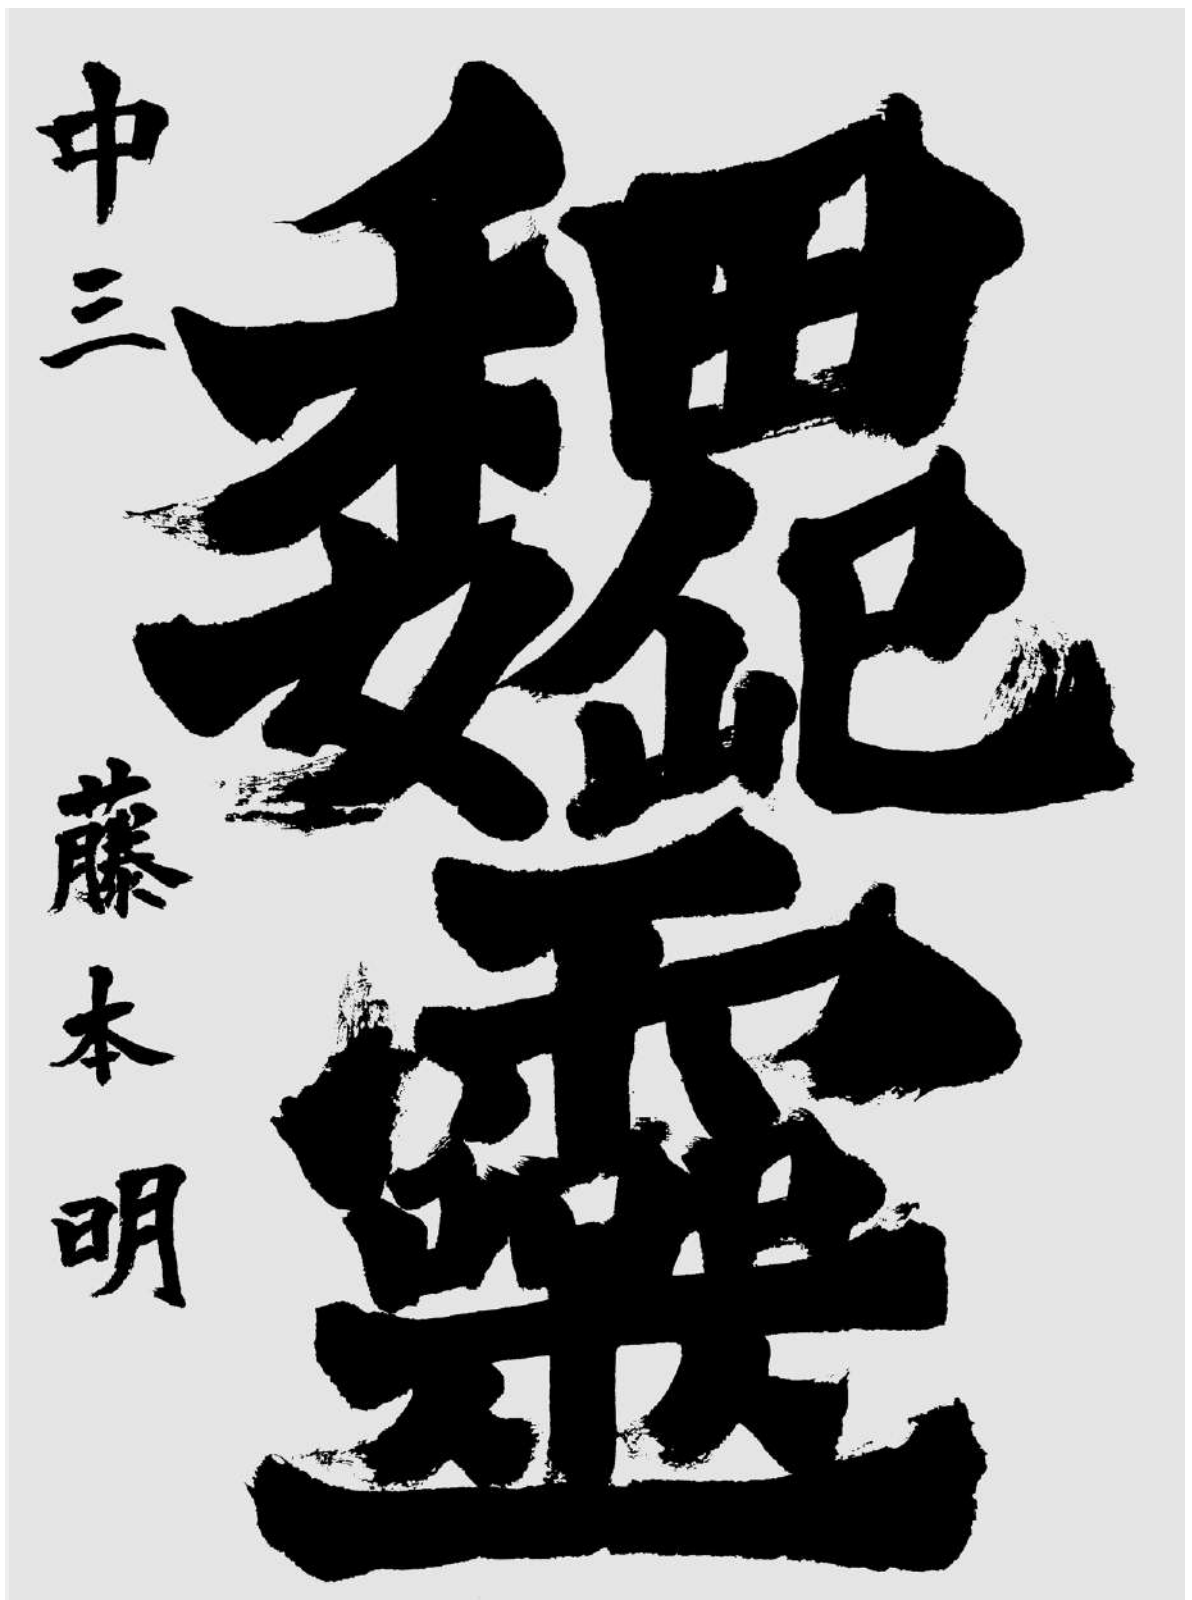 魏靈
中三 藤本明